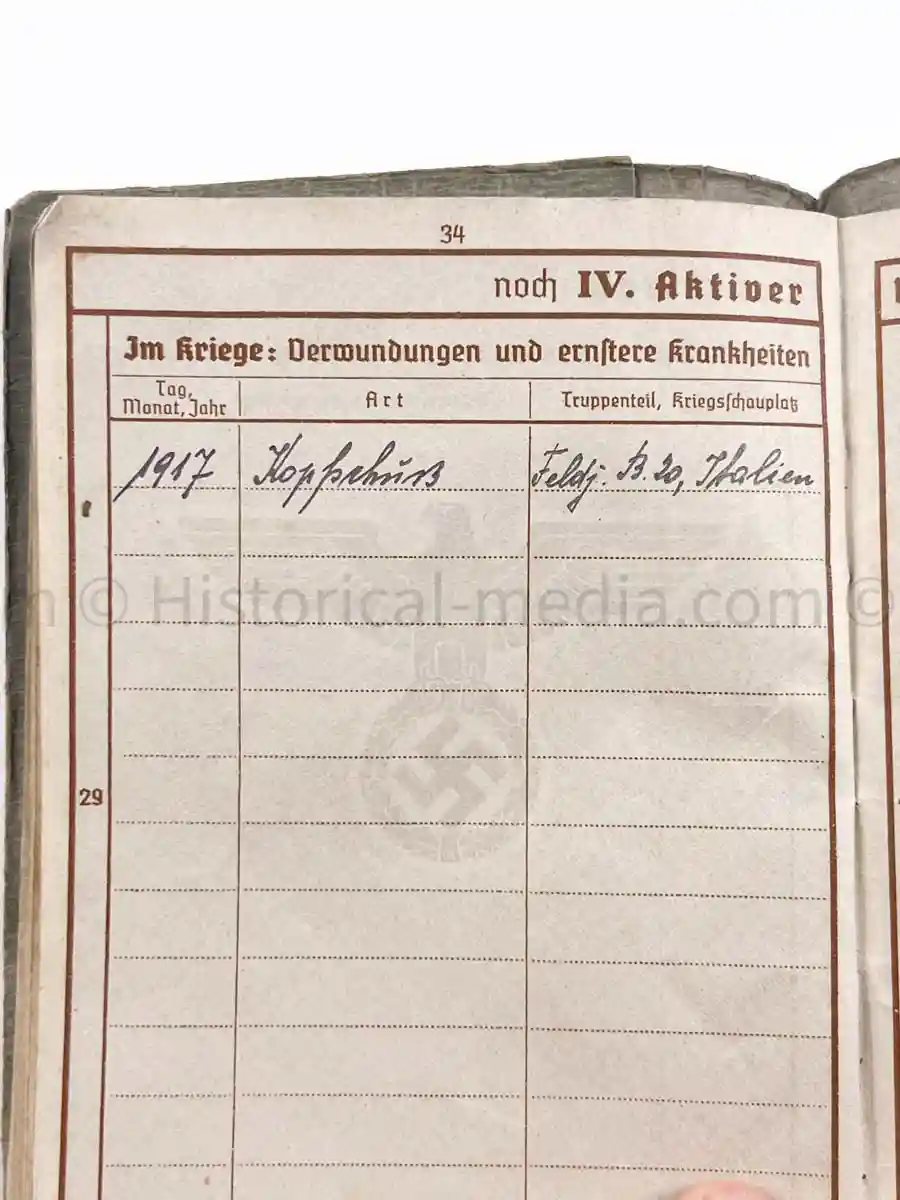 34
noch IV. Aktiver
Im Kriege: Verwundungen und ernstere Krankheiten
Tag, Monat, Jahr
Art
Truppenteil, Kriegsschauplatz
1917 Kopfschuß Feldj. B. 20, Italien
© Historical-media.com ©
29